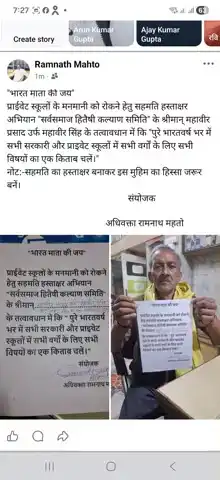 7:27
Create story
Arun Kumar Gupta
Ajay Kumar Gupta
Ramnath Mahto
1m
"भारत माता की जय"
प्राईवेट स्कूलों के मनमानी को रोकने हेतु सहमति हस्ताक्षर
अभियान "सर्वसमाज हितैषी कल्याण समिति" के श्रीमान् महावीर
प्रसाद उर्फ महावीर सिंह के तत्वाधान में कि "पुरे भारतवर्ष भर में
सभी सरकारी और प्राइवेट स्कूलों में सभी वर्गों के लिए सभी
विषयों का एक किताब चले।"
नोट:-सहमति का हस्ताक्षर बनाकर इस मुहिम का हिस्सा जरूर
बनें।
संयोजक
अधिवक्ता रामनाथ महतो
"भारत माता की जय"
प्राईवेट स्कूलों के मनमानी को रोकने
हेतु सहमति हस्ताक्षर अभियान
"सर्वसमाज हितैषी कल्याण समिति"
के श्रीमान्
के तत्वाधान में कि " पुरे भारतवर्ष
भर में सभी सरकारी और प्राइवेट
स्कूलों में सभी वर्गों के लिए सभी
विषयों का एक किताब चले।"
संयोजक
अधिवक्ता रामनाथ म
"भारत माता की जय"